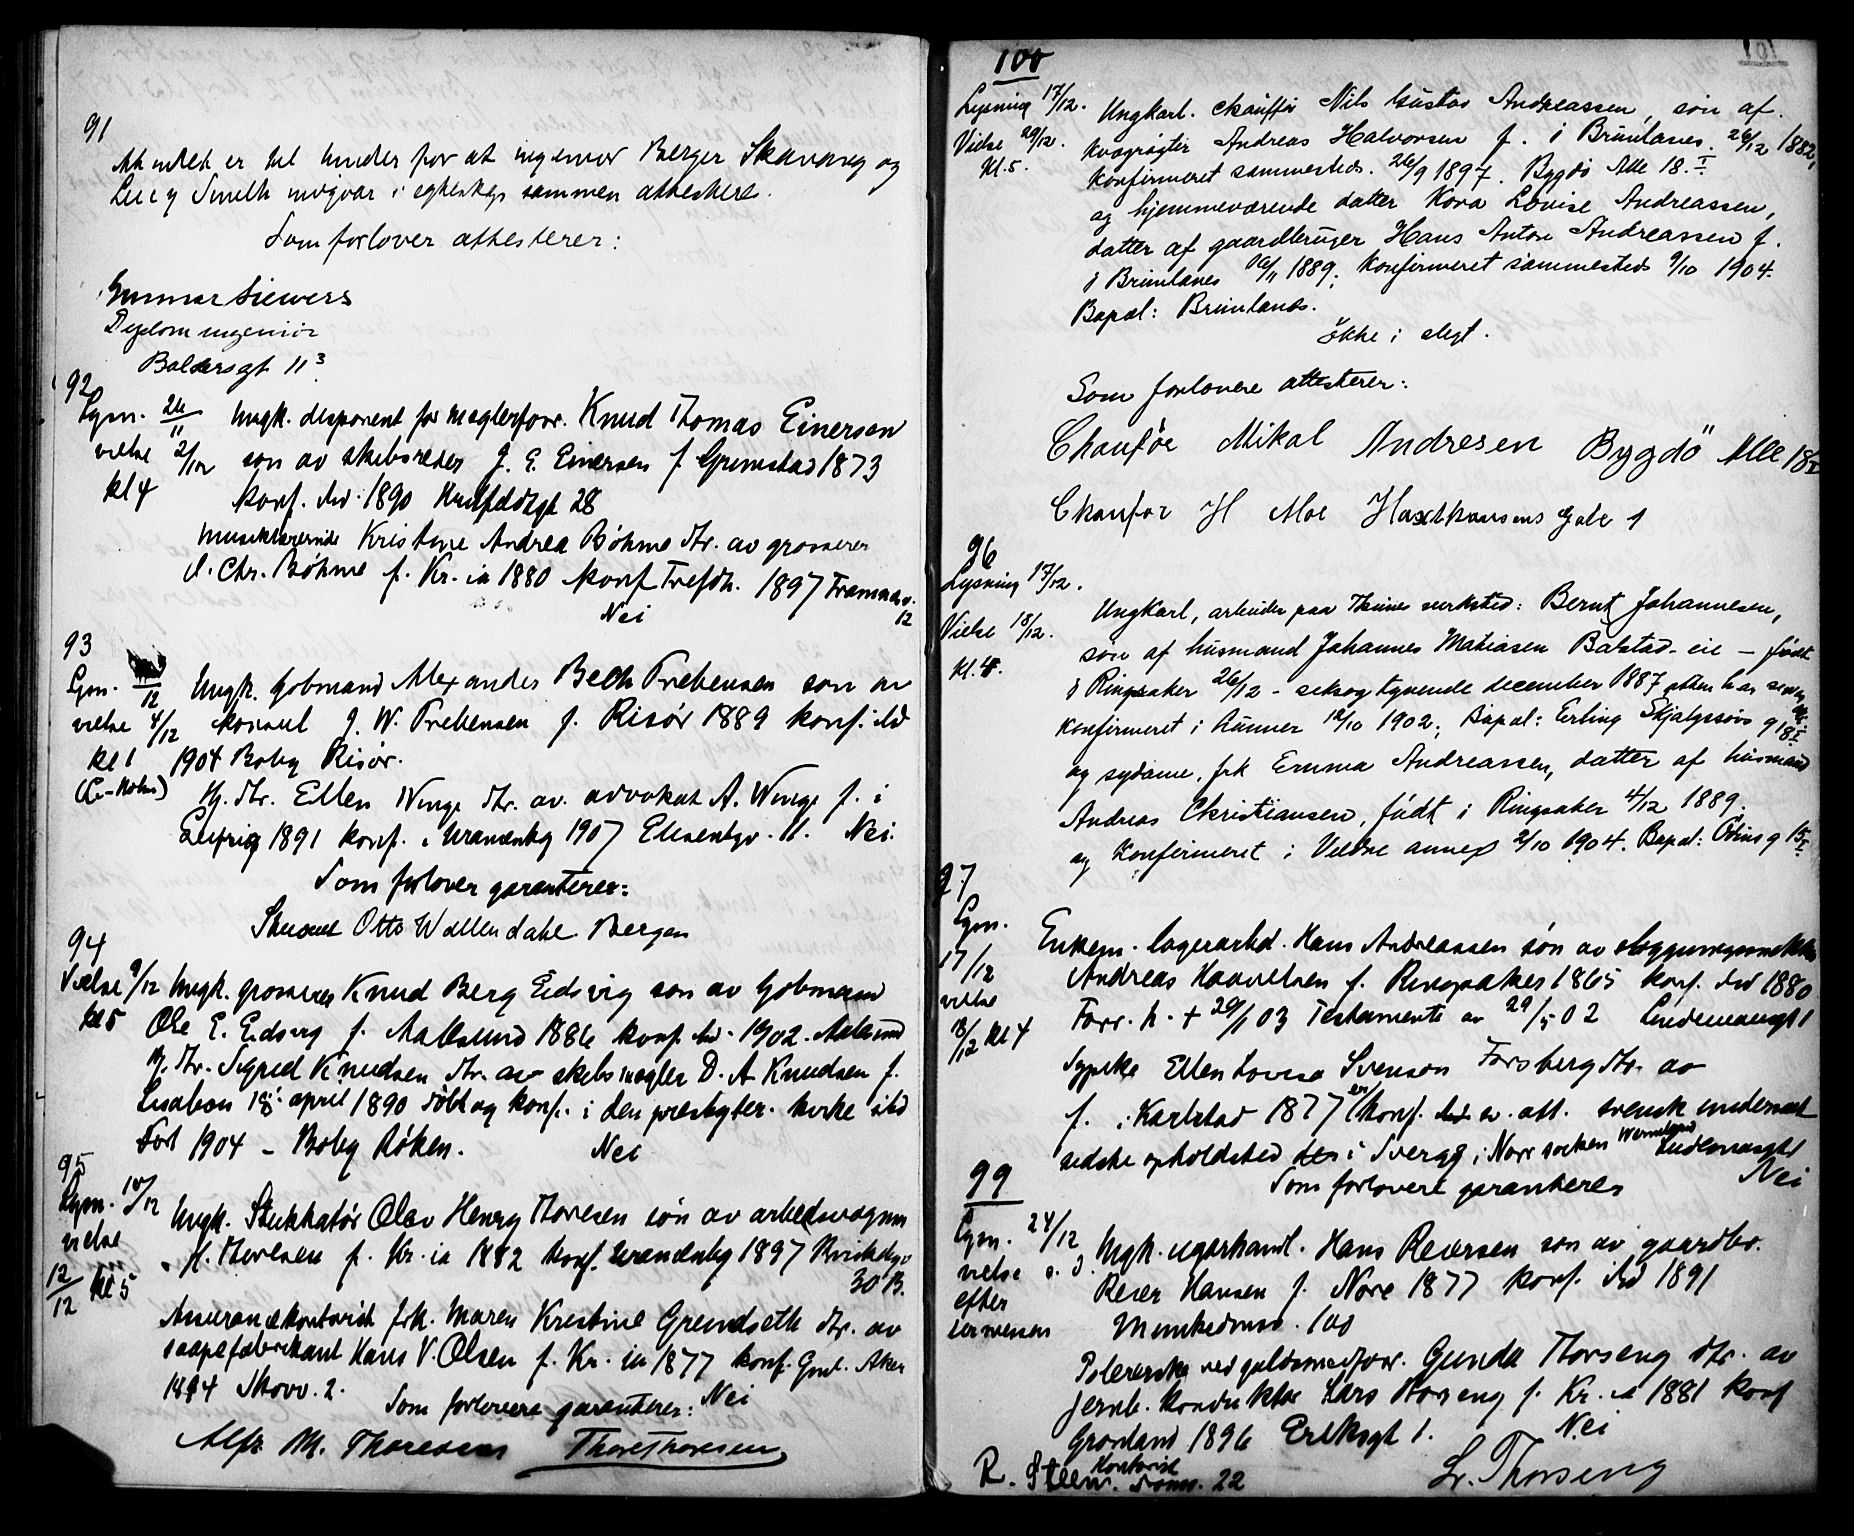 91
At intet er til hinder for at ingeniør Berger Skavang og
Lucy Smith indgaar i egteskap sammen attestere
Som forlover attesterer:
Gunnar Siewers
Diplom ingeniør
Baldersgt 11³
92
Lysn. 26/11 Ungk. disponent for Knud Thomas Einersen
vielse 2/12 søn av skibsreder J. E. Einersen f Grimstad 1873
kl 4 konf. ibd. 1890 28
Kristine Andrea Bøhme dtr. av grosserer
Chr. Bøhme f. Kr.ia 1880 konf Trefdh. 1897
Nei 12
93
Lysn. /12 Ungk. kjøbmand Alexander Bech Prebensen søn av
vielse 4/12 konsul J. W. Prebensen f. Risør 1889 konf. ibd
kl 1 1904 Bolig Risør.
Hj. dtr. Ellen Winge dtr. av advokat A. Winge f. i
Leipzig 1891 konf. i Uranienbg 1907 11. Nei.
Som forlover garanterer:
Otto Wallendahl Bergen
94
Vielse 9/12 Ungk. grosserer Knud Berg Eidsvig søn av kjøbmand
kl 5 Ole E. Eidsvig f. Aalesund 1886 konf. ibd. 1902. Aalesund
Hj. dtr. Sigrid Knudsen dtr. av skibsmægler D. A. Knudsen f.
Lisabon april 1890 døbt og konf. i den presbyter. kirke ibd
1904 – Bolig Røken. Nei
95
Lysn. 10/12 Ungk. Stukkatør Olav Henry Thoresen søn av
vielse H. Thoresen f. Kr.ia 1882 konf. Uranienbg 1897
12/12 kl 5 30 B.
Assurancekontorist frk. Maren Kristine Grundseth dtr. av
saapefabrikant Hans V. Olsen f. Kr.ia 1877 konf. Gml. Aker
1894 Skovv. 2. Nei
Som forlovere garanterer:
Alfr M. Thoresen Thore Thoresen
100
Lysning 17/12. Ungkarl. chauffør Nils Gustav Andreassen, søn af
Vielse 29/12. kvægrøgter Andreas Halvorsen f. i Brunlanes. 26/12 1882,
Kl. 5. Konfirmeret sammesteds. 26/9 1897. Bygdø Alle 18. I
og hjemmeværende datter Kora Lovise Andreassen,
datter af gaardbruger Hans Anton Andreassen f.
i Brunlanes 16/11 1889; Konfirmeret sammesteds 9/10 1904.
Bopæl: Brunlanes.
Ikke i slegt.
Som forlovere attesterer:
Chauför Mikal Andresen Bygdö Alle 18
Chauför H Moe Haxthausens gate 1
96
Lysning 17/12. Ungkarl, arbeider paa Thunes verksted: Bernt Johannesen,
Vielse 18/12. søn af husmand Johannes Matiasen Balstad-eie – født
Kl. 4. i Ringsaker 26/12 – seksogtyvende december 1887
Konfirmeret i Runner 12/10 1902; Bopæl: Erling Skjalgssøns g 18
og sydame, frk Emma Andreassen, datter af husmand
Andreas Christiansen, født i Ringsaker 4/12 1889.
og Konfirmeret i Veldre annex 2/10 1904. Bopæl: Odins g 15 I
97
Lysn. Enkem. lagerarbd. Hans Andreassen søn av
17/12 Andreas Haavelsen f. Ringsaker 1865 konf. ibd 1880
vielse Forr. h. + 29/1 03 Testamente av 29/5 02 Lindemansgt 1
18/12 kl 4 Sypike Ellen Lovisa Svenson Forsberg dtr. av
f. i Karlstad 1877 konf. svensk undersaat
sidste opholdsted i Sverge i Norr socken Wermland Lindemansgt 1
Som forlovere garanteres Nei
99
Lysn. 24/12 Ungk. Hans Reiersen søn av gaardbr.
vielse s. d. Reier Hansen f. Nore 1877 konf. ibd 1891
efter Munkedamsv. 100
Polererske ved guldsmedforr. Gunda Thorseng dtr. av
jernb. konduktør Lars Thorseng f. Kr.ia 1881 konf
Grønland 1896 Eriksgt 1. Nei
R. Steen. Kontorist 22 Lr. Thorseng